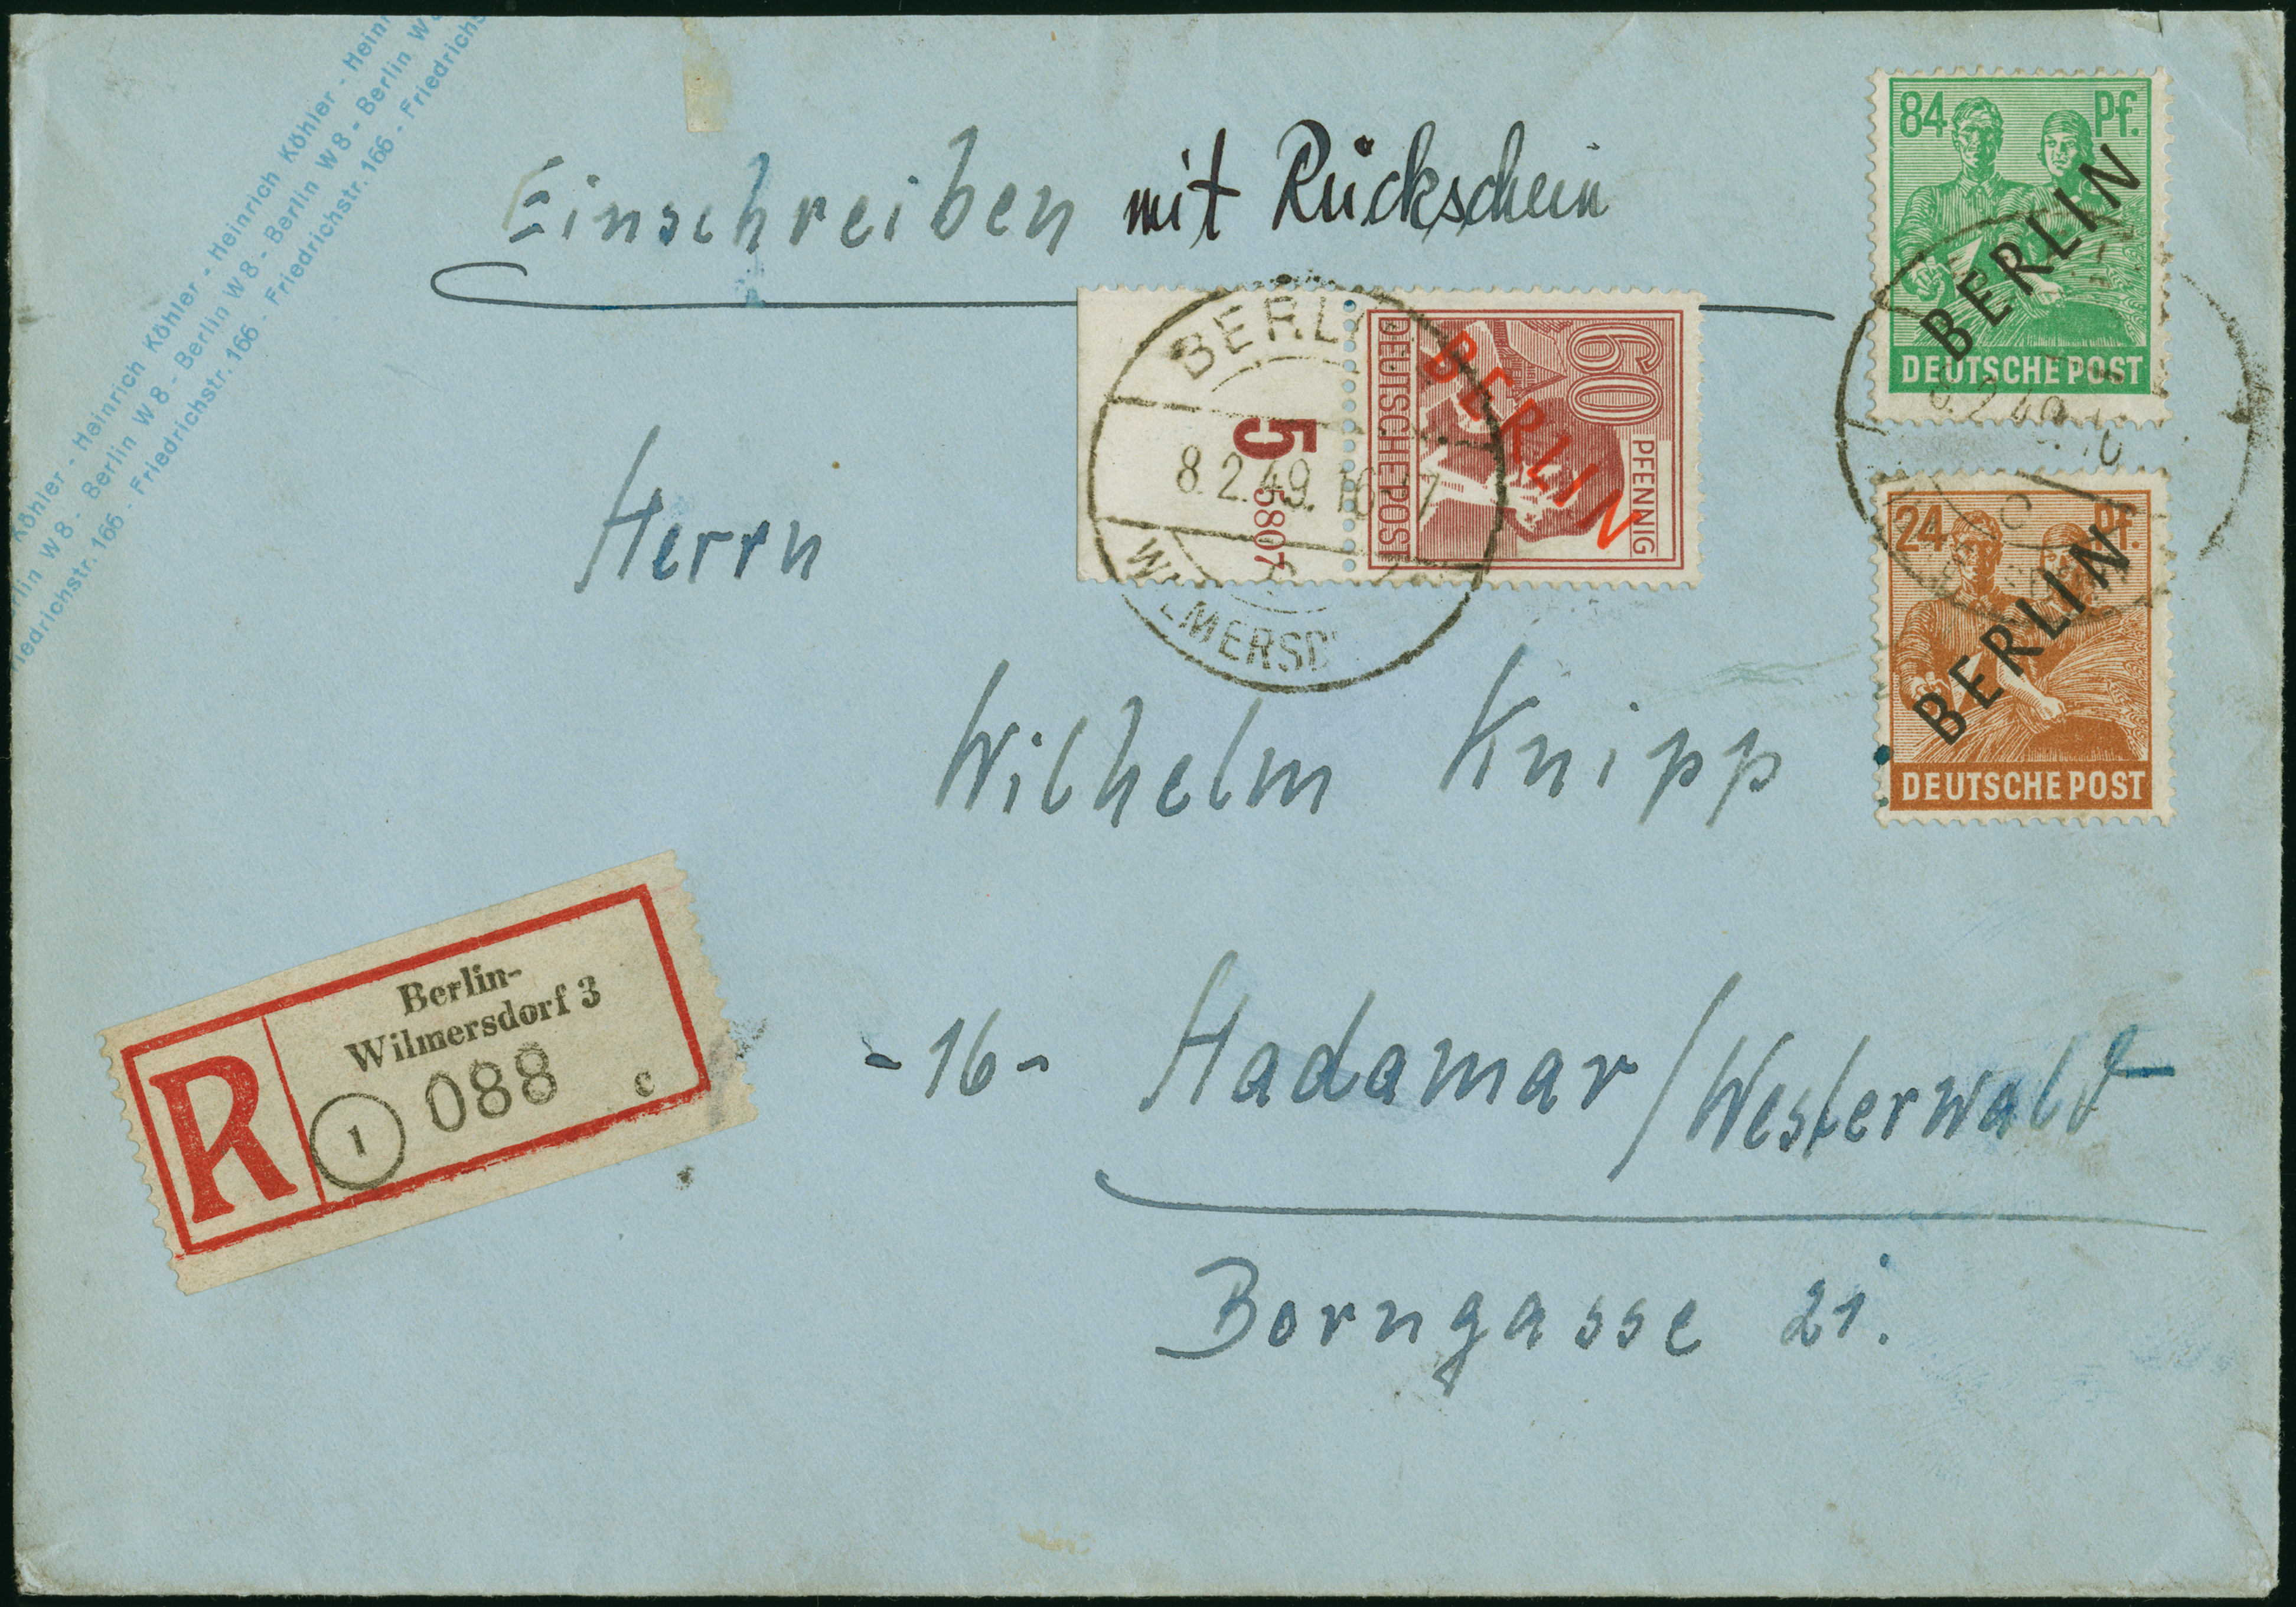 Köhler - Heinrich Köhler - Heinrich Köhler
Berlin W 8 - Berlin W 8 - Berlin W 8 - Berlin W 8 - Berlin
Friedrichstr. 166 - Friedrichstr. 166 - Friedrichstr. 166 - Friedrichstr. 166
Einschreiben mit Rückschein
84 Pf.
BERLIN
DEUTSCHE POST
60
PFENNIG
BERLIN
DEUTSCHE POST
5
5807
8.2.49. 16-17
24 Pf.
BERLIN
DEUTSCHE POST
Herrn
Wilhelm Knipp
-16- Hadamar/Westerwald
Borngasse 21.
R
Berlin-
Wilmersdorf 3
1
088
c